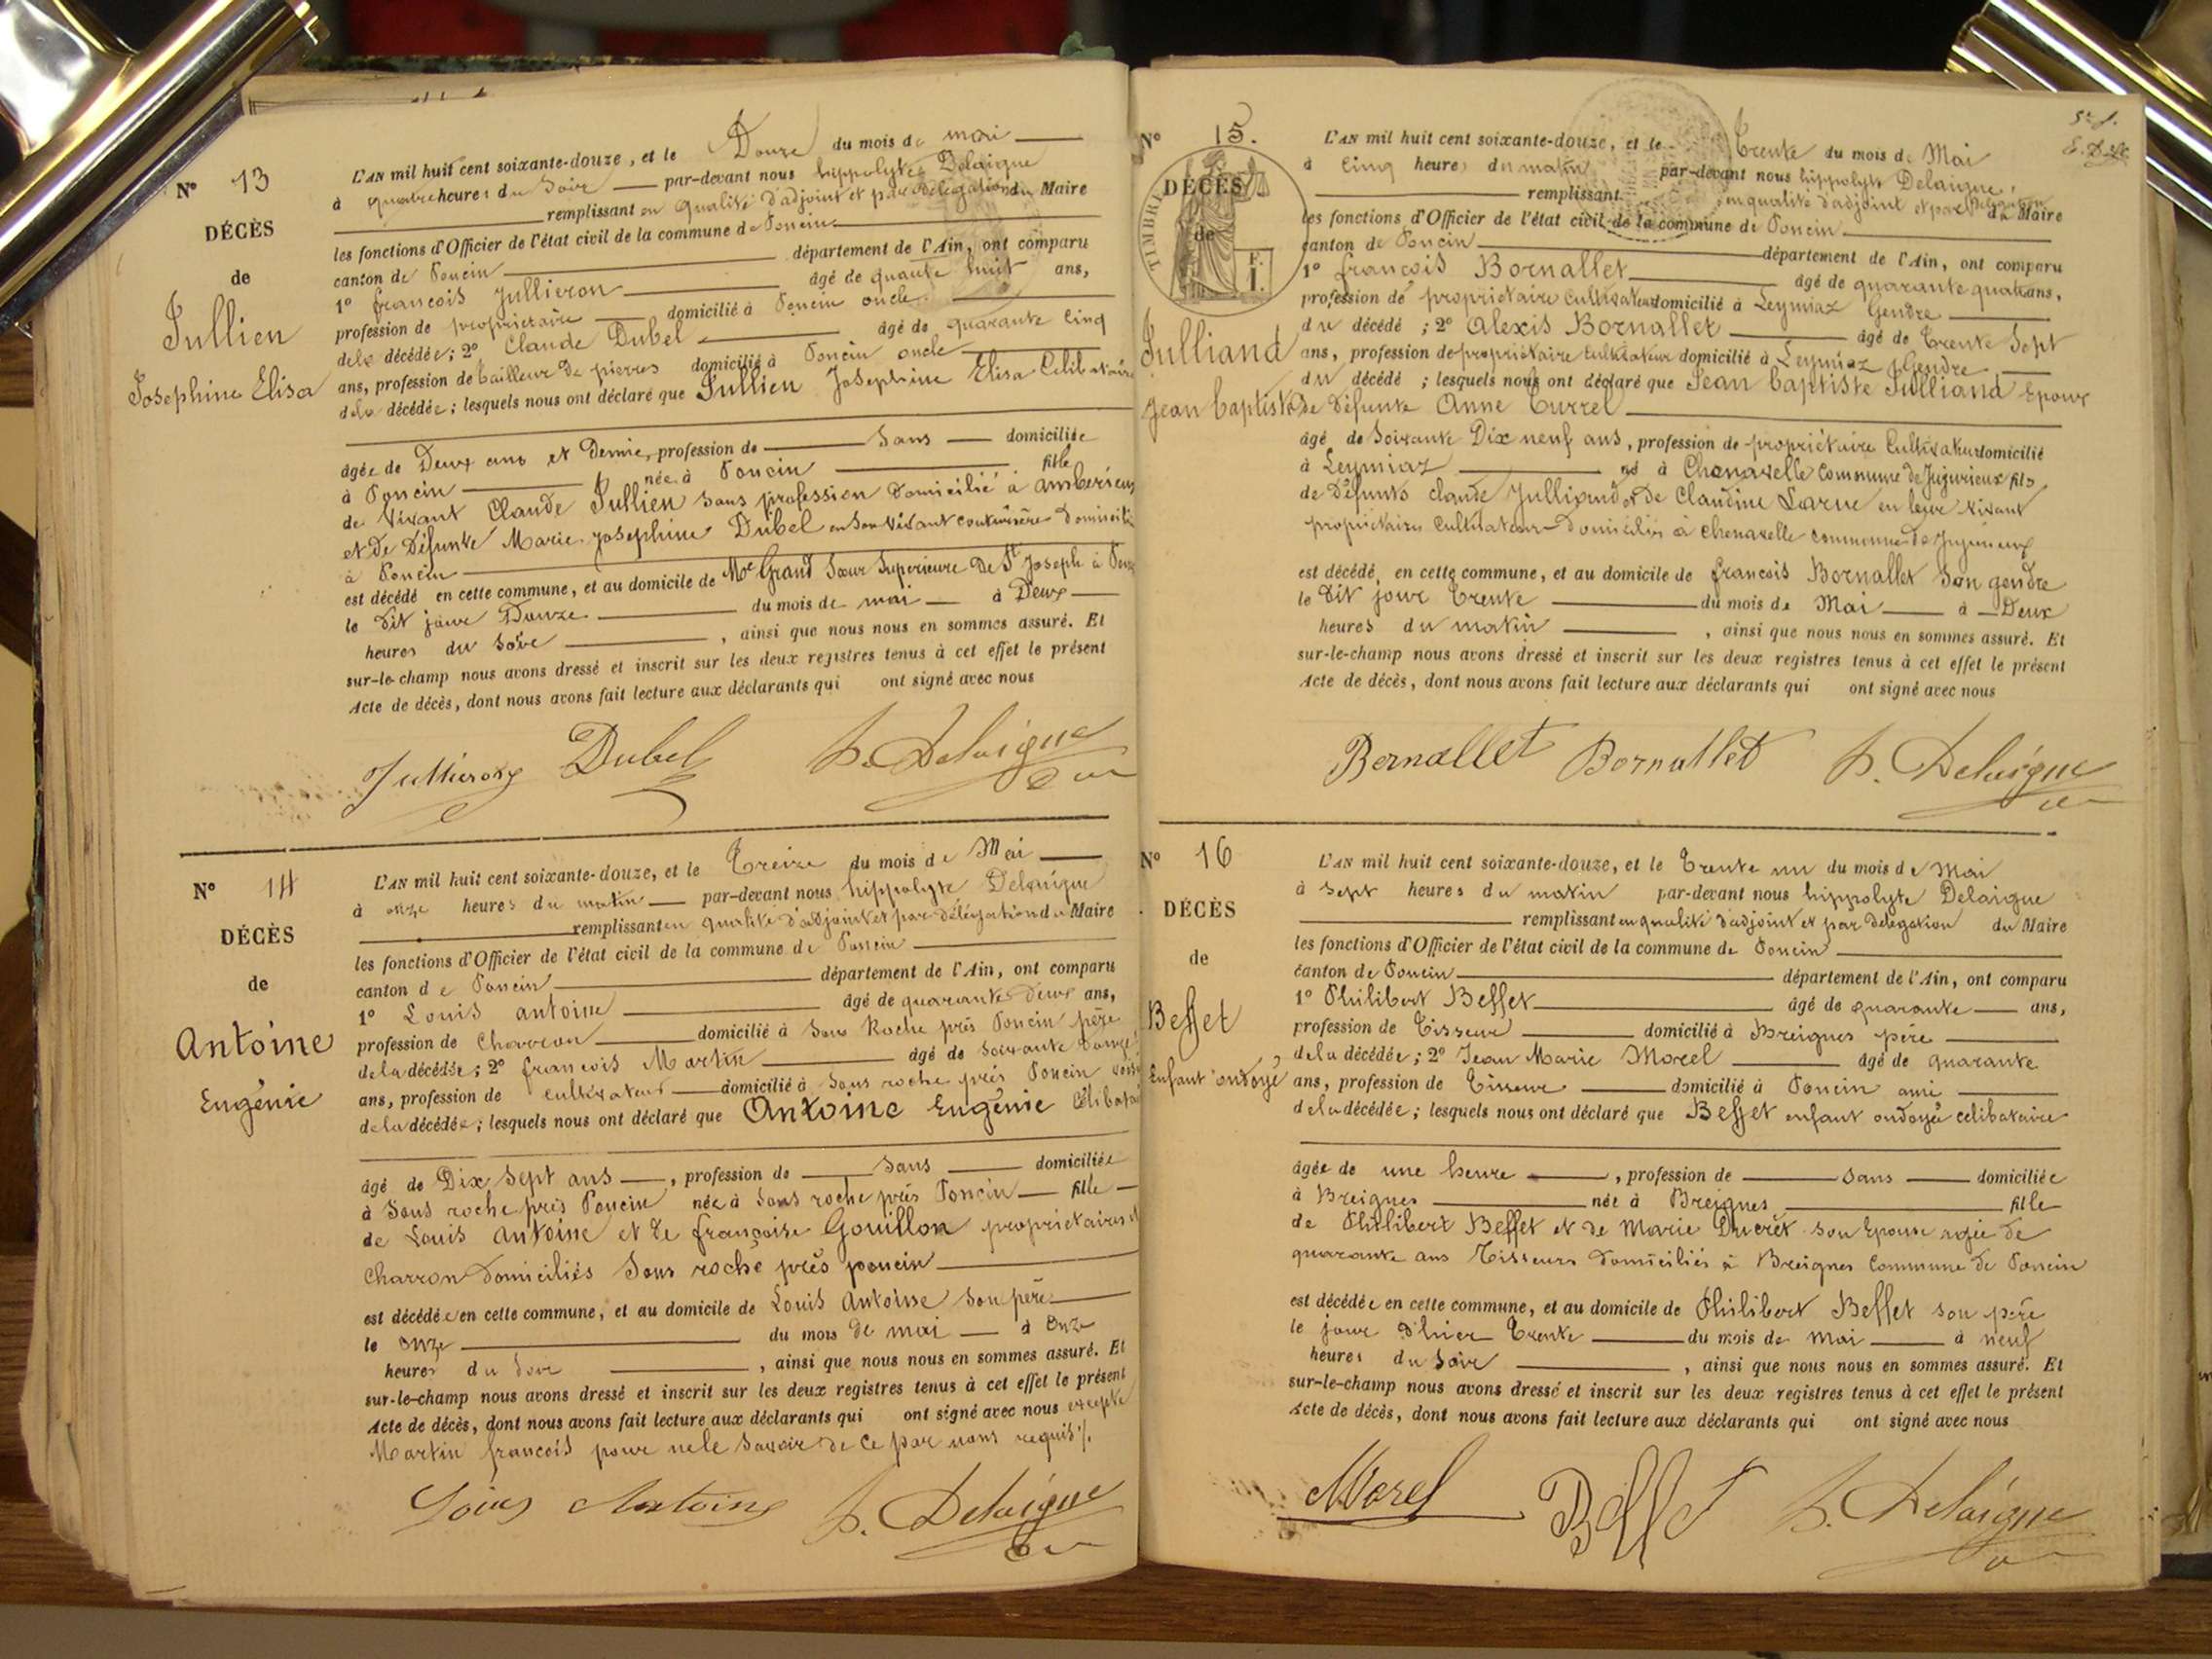 N° 13
DÉCÈS
de
Jullien
Josephine Elisa
L'AN mil huit cent soixante-douze, et le Douze du mois de mai
à quatre heures du Soir par-devant nous hippolyte Delaigue
remplissant en qualité d'adjoint et par délégation du Maire
les fonctions d'Officier de l'état civil de la commune de Poncin
canton de Poncin département de l'Ain, ont comparu
1° francois Jullieron âgé de quarante huit ans,
profession de propriétaire domicilié à Poncin oncle
dela décédée; 2° Claude Dubel âgé de quarante Cinq
ans, profession de tailleur de pierres domicilié à Poncin oncle
dela décédée; lesquels nous ont déclaré que Jullien Josephine Elisa Celibataire
âgée de Deux ans et Demie, profession de Sans domiciliée
à Poncin née à Poncin fille
de Vivant Claude Jullien sans profession domicilié à amberieux
et de Défunte Marie Josephine Dubel en Son Vivant couturière Domicilié
à Poncin
est décédé en cette commune, et au domicile de Me Grand Sœur Superieure De St Joseph à
le dit jour Douze du mois de mai à Deux
heures du Soir, ainsi que nous nous en sommes assuré. Et
sur-le-champ nous avons dressé et inscrit sur les deux registres tenus à cet effet le présent
Acte de décès, dont nous avons fait lecture aux déclarants qui ont signé avec nous
Jullieron Dubel h. Delaigue
N° 14
DÉCÈS
de
Antoine
Eugénie
L'AN mil huit cent soixante-douze, et le Treize du mois de Mai
à onze heures du matin par-devant nous hippolyte Delaigue
remplissant en qualité d'adjoint et par délégation du Maire
les fonctions d'Officier de l'état civil de la commune de Poncin
canton de Poncin département de l'Ain, ont comparu
1° Louis antoine âgé de quarante Deux ans,
profession de Charron domicilié à Sous Roche près Poncin père
dela décédée; 2° francois Martin âgé de soixante
ans, profession de cultivateur domicilié à Sous roche près Poncin
dela décédée; lesquels nous ont déclaré que Antoine Eugénie
âgé de Dix Sept ans, profession de Sans domiciliée
à Sous roche près Poncin née à Sous roche près Poncin fille
de Louis Antoine et de françoise Gouillon propriétaires et
Charron domiciliés Sous roche près poncin
est décédée en cette commune, et au domicile de Louis Antoine Son père
le onze du mois de mai à Onze
heures du Soir, ainsi que nous nous en sommes assuré. Et
sur-le-champ nous avons dressé et inscrit sur les deux registres tenus à cet effet le présent
Acte de décès, dont nous avons fait lecture aux déclarants qui ont signé avec nous excepté
Martin francois pour ne le Savoir de ce par nous requis
Louis Antoine h. Delaigue
N° 15.
TIMBRE
DÉCÈS
de
Julliand
Jean baptiste
L'AN mil huit cent soixante-douze, et le Trente du mois de Mai
à Cinq heures du matin par-devant nous hippolyte Delaigue,
remplissant en qualité d'adjoint et par délégation du Maire
les fonctions d'Officier de l'état civil de la commune de Poncin
canton de Poncin département de l'Ain, ont comparu
1° françois Bornallet âgé de quarante quatre ans,
profession de propriétaire Cultivateur domicilié à Leymiaz Gendre
du décédé ; 2° Alexis Bornallet âgé de Trente Sept
ans, profession de propriétaire Cultivateur domicilié à Leymiaz Gendre
du décédé ; lesquels nous ont déclaré que Jean baptiste Julliand Epoux
de défunte Anne Turrel
âgé de Soixante Dix neuf ans, profession de propriétaire Cultivateur domicilié
à Leymiaz né à Chenavelle Commune de Jujurieux fils
de Défunts claude Julliand et De Claudine Larue en leur vivant
propriétaires Cultivateurs Domiciliés à Chenavelle commune de Jujurieux
est décédé en cette commune, et au domicile de francois Bornallet Son gendre
le dit jour Trente du mois de Mai à Deux
heures du matin, ainsi que nous nous en sommes assuré. Et
sur-le-champ nous avons dressé et inscrit sur les deux registres tenus à cet effet le présent
Acte de décès, dont nous avons fait lecture aux déclarants qui ont signé avec nous
Bornallet Bornallet h. Delaigue
N° 16
DÉCÈS
de
Beffet
Enfant ondoyé
L'AN mil huit cent soixante-douze, et le Trente un du mois de Mai
à Sept heures du matin par-devant nous hippolyte Delaigue
remplissant en qualité d'adjoint et par délégation du Maire
les fonctions d'Officier de l'état civil de la commune de Poncin
canton de Poncin département de l'Ain, ont comparu
1° Philibert Beffet âgé de quarante ans,
profession de Tisseur domicilié à Breignes père
dela décédée; 2° Jean Marie Morel âgé de quarante
ans, profession de Tisseur domicilié à Poncin ami
dela décédée; lesquels nous ont déclaré que Beffet enfant ondoyée celibataire
âgée de une heure, profession de Sans domiciliée
à Breignes née à Breignes fille
de Philibert Beffet et de Marie Ducrêt son Epouse agée de
quarante ans Tisseurs domiciliés à Breignes Commune de Poncin
est décédée en cette commune, et au domicile de Philibert Beffet son père
le jour d'hier Trente du mois de Mai à neuf
heures du Soir, ainsi que nous nous en sommes assuré. Et
sur-le-champ nous avons dressé et inscrit sur les deux registres tenus à cet effet le présent
Acte de décès, dont nous avons fait lecture aux déclarants qui ont signé avec nous
Morel Beffet h. Delaigue